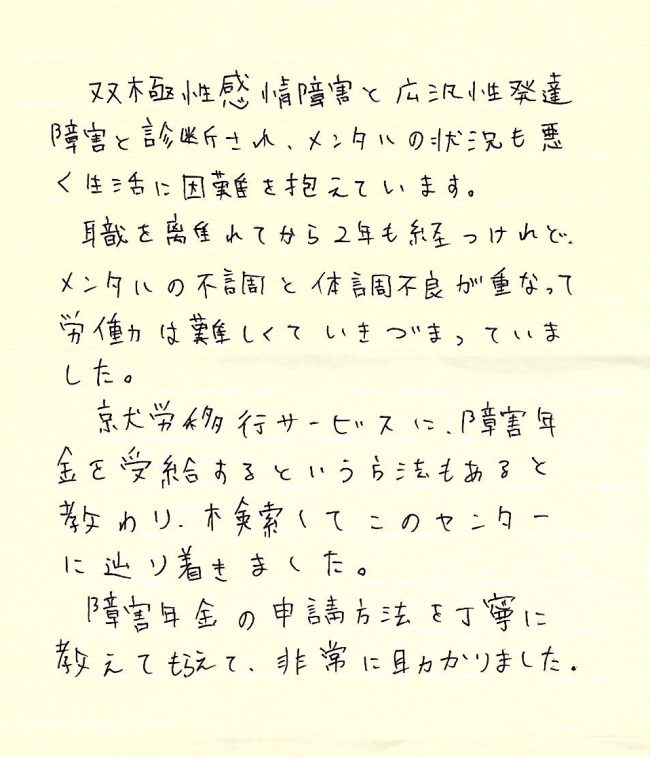 双極性感情障害と広汎性発達
障害と診断され、メンタルの状況も悪
く生活に困難を抱えています。
職を離れてから2年も経つけれど、
メンタルの不調と体調不良が重なって
労働は難しくていきづまっていま
した。
就労移行サービスに、障害年
金を受給するという方法もあると
教わり、検索してこのセンター
に辿り着きました。
障害年金の申請方法を丁寧に
教えてもらえて、非常に助かりました。